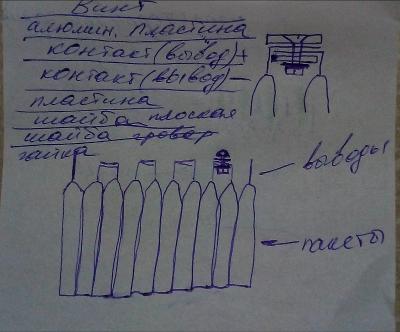 Винт
алюмин. пластина
контакт(вывод)+
контакт(вывод)—
пластина
шайба плоская
шайба гровер
гайка
выводы
пакеты